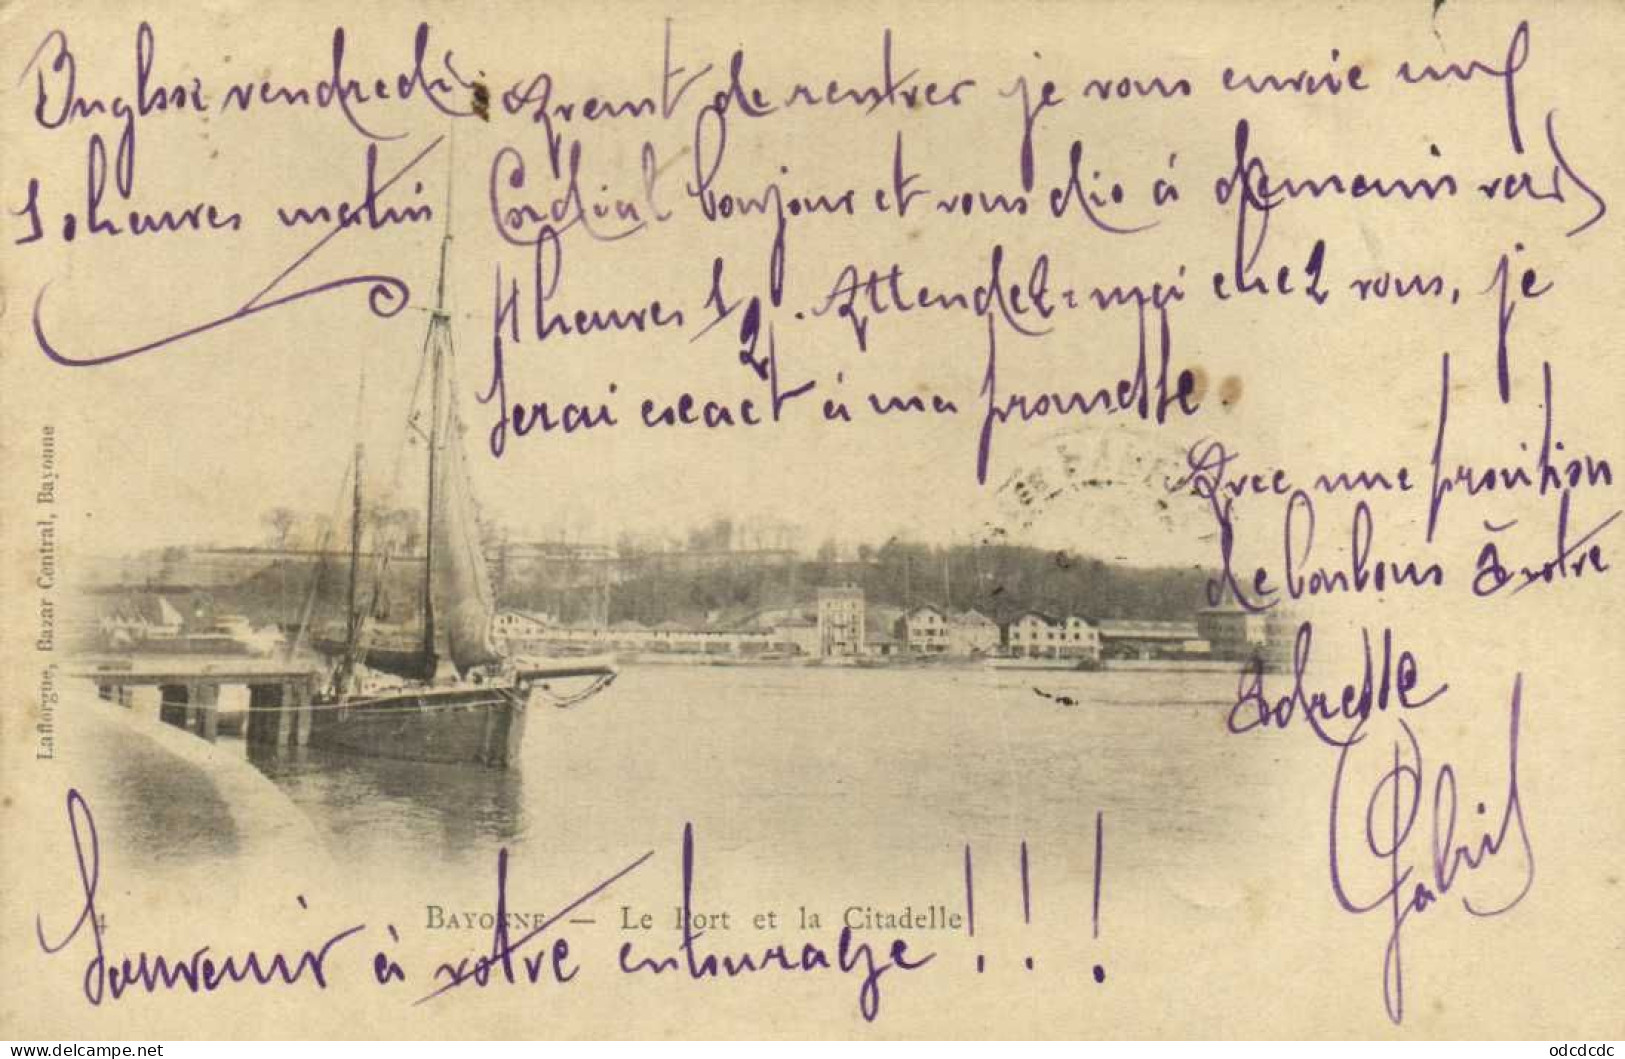 vendredi
10 heures matin
Avant de rentrer je vous envoie un
Cordial bonjour et vous dis à demain vers
4 heures 1/2. Attendez-moi chez vous, je
serai exact à ma promesse.
Avec une provition
de bonbons à votre
adresse
Gabriel
Souvenir à votre entourage !!!
4
BAYONNE — Le Port et la Citadelle
Lafforgue, Bazar Central, Bayonne
PARIS
www.delcampe.net
odcdcdc